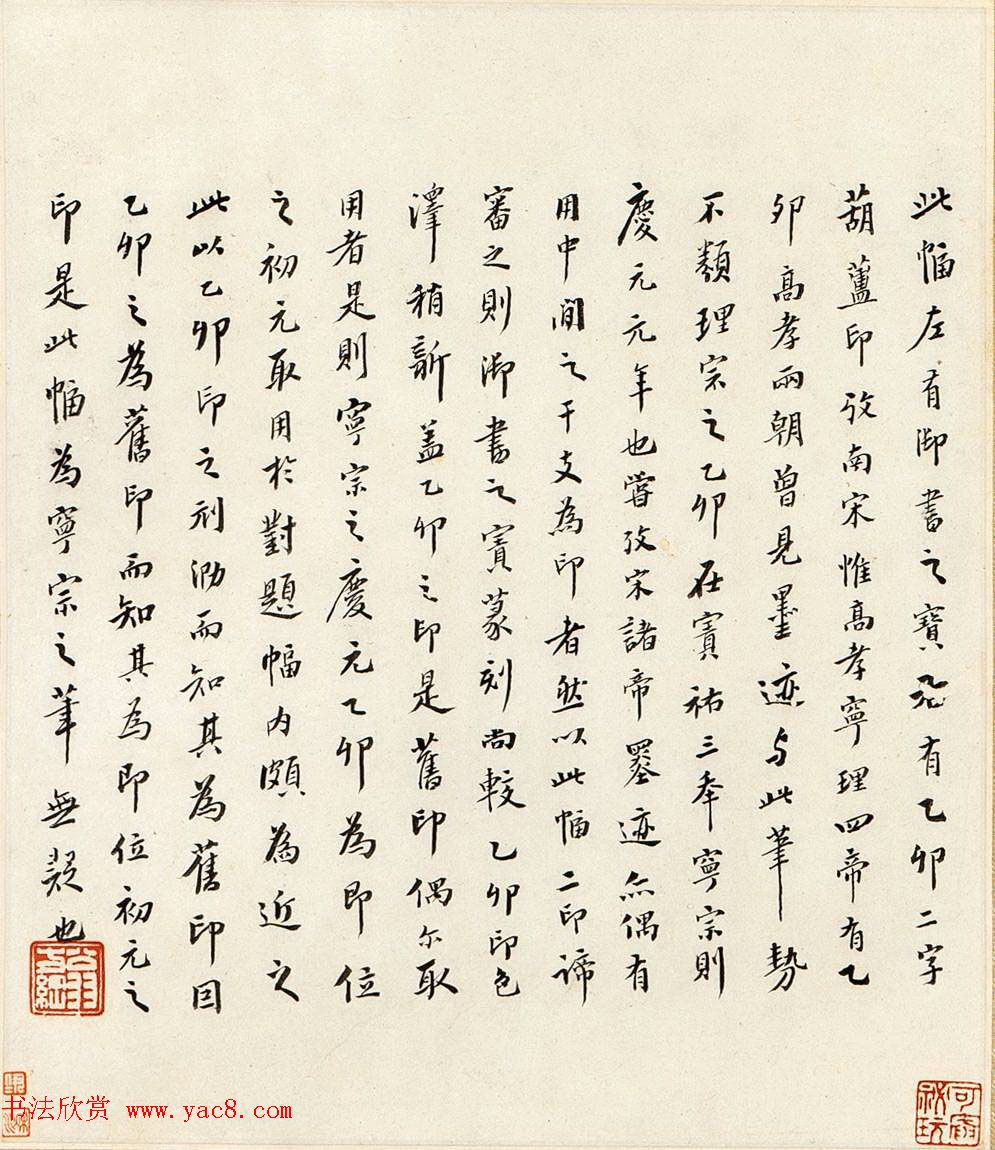 此幅左有御書之寶及有乙卯二字
葫蘆印攷南宋惟高孝寧理四帝有乙
卯高孝兩朝曾見墨迹与此筆勢
不類理宗之乙卯在寶祐三年寧宗則
慶元元年也嘗攷宋諸帝墨迹亦偶有
用中間之干支為印者然以此幅二印諦
審之則御書之寶篆刻尚較乙卯印色
澤稍新盖乙卯之印是舊印偶尔取
用者是則寧宗之慶元乙卯為即位
之初元取用於對題幅內頗為近之
此以乙卯印之刓泐而知其為舊印因
乙卯之為舊印而知其為即位初元之
印是此幅為寧宗之筆無疑也
书法欣赏 www.yac8.com